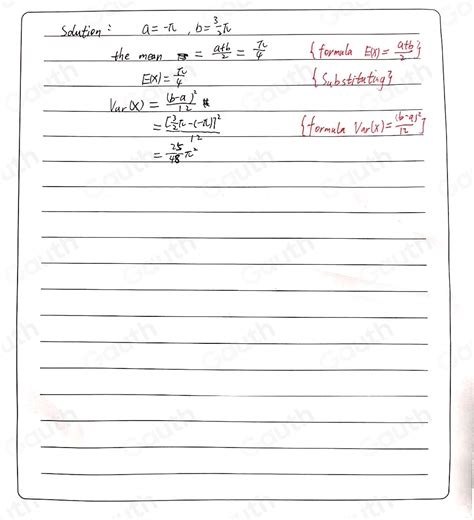 Solution : a = -π , b = 3/2 π
the mean = (a+b)/2 = π/4 {formula E(X) = (a+b)/2}
E(X) = π/4 {Substituting}
Var(X) = (b-a)²/12
= [3/2 π - (-π)]²/12 {formula Var(X) = (b-a)²/12}
= 25/48 π²